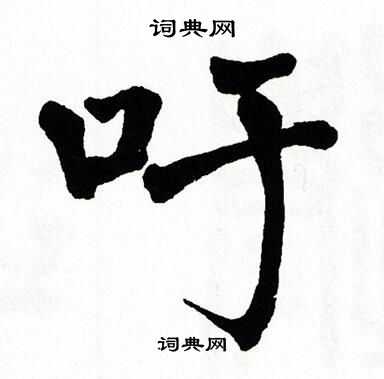 词典网
吁
词典网